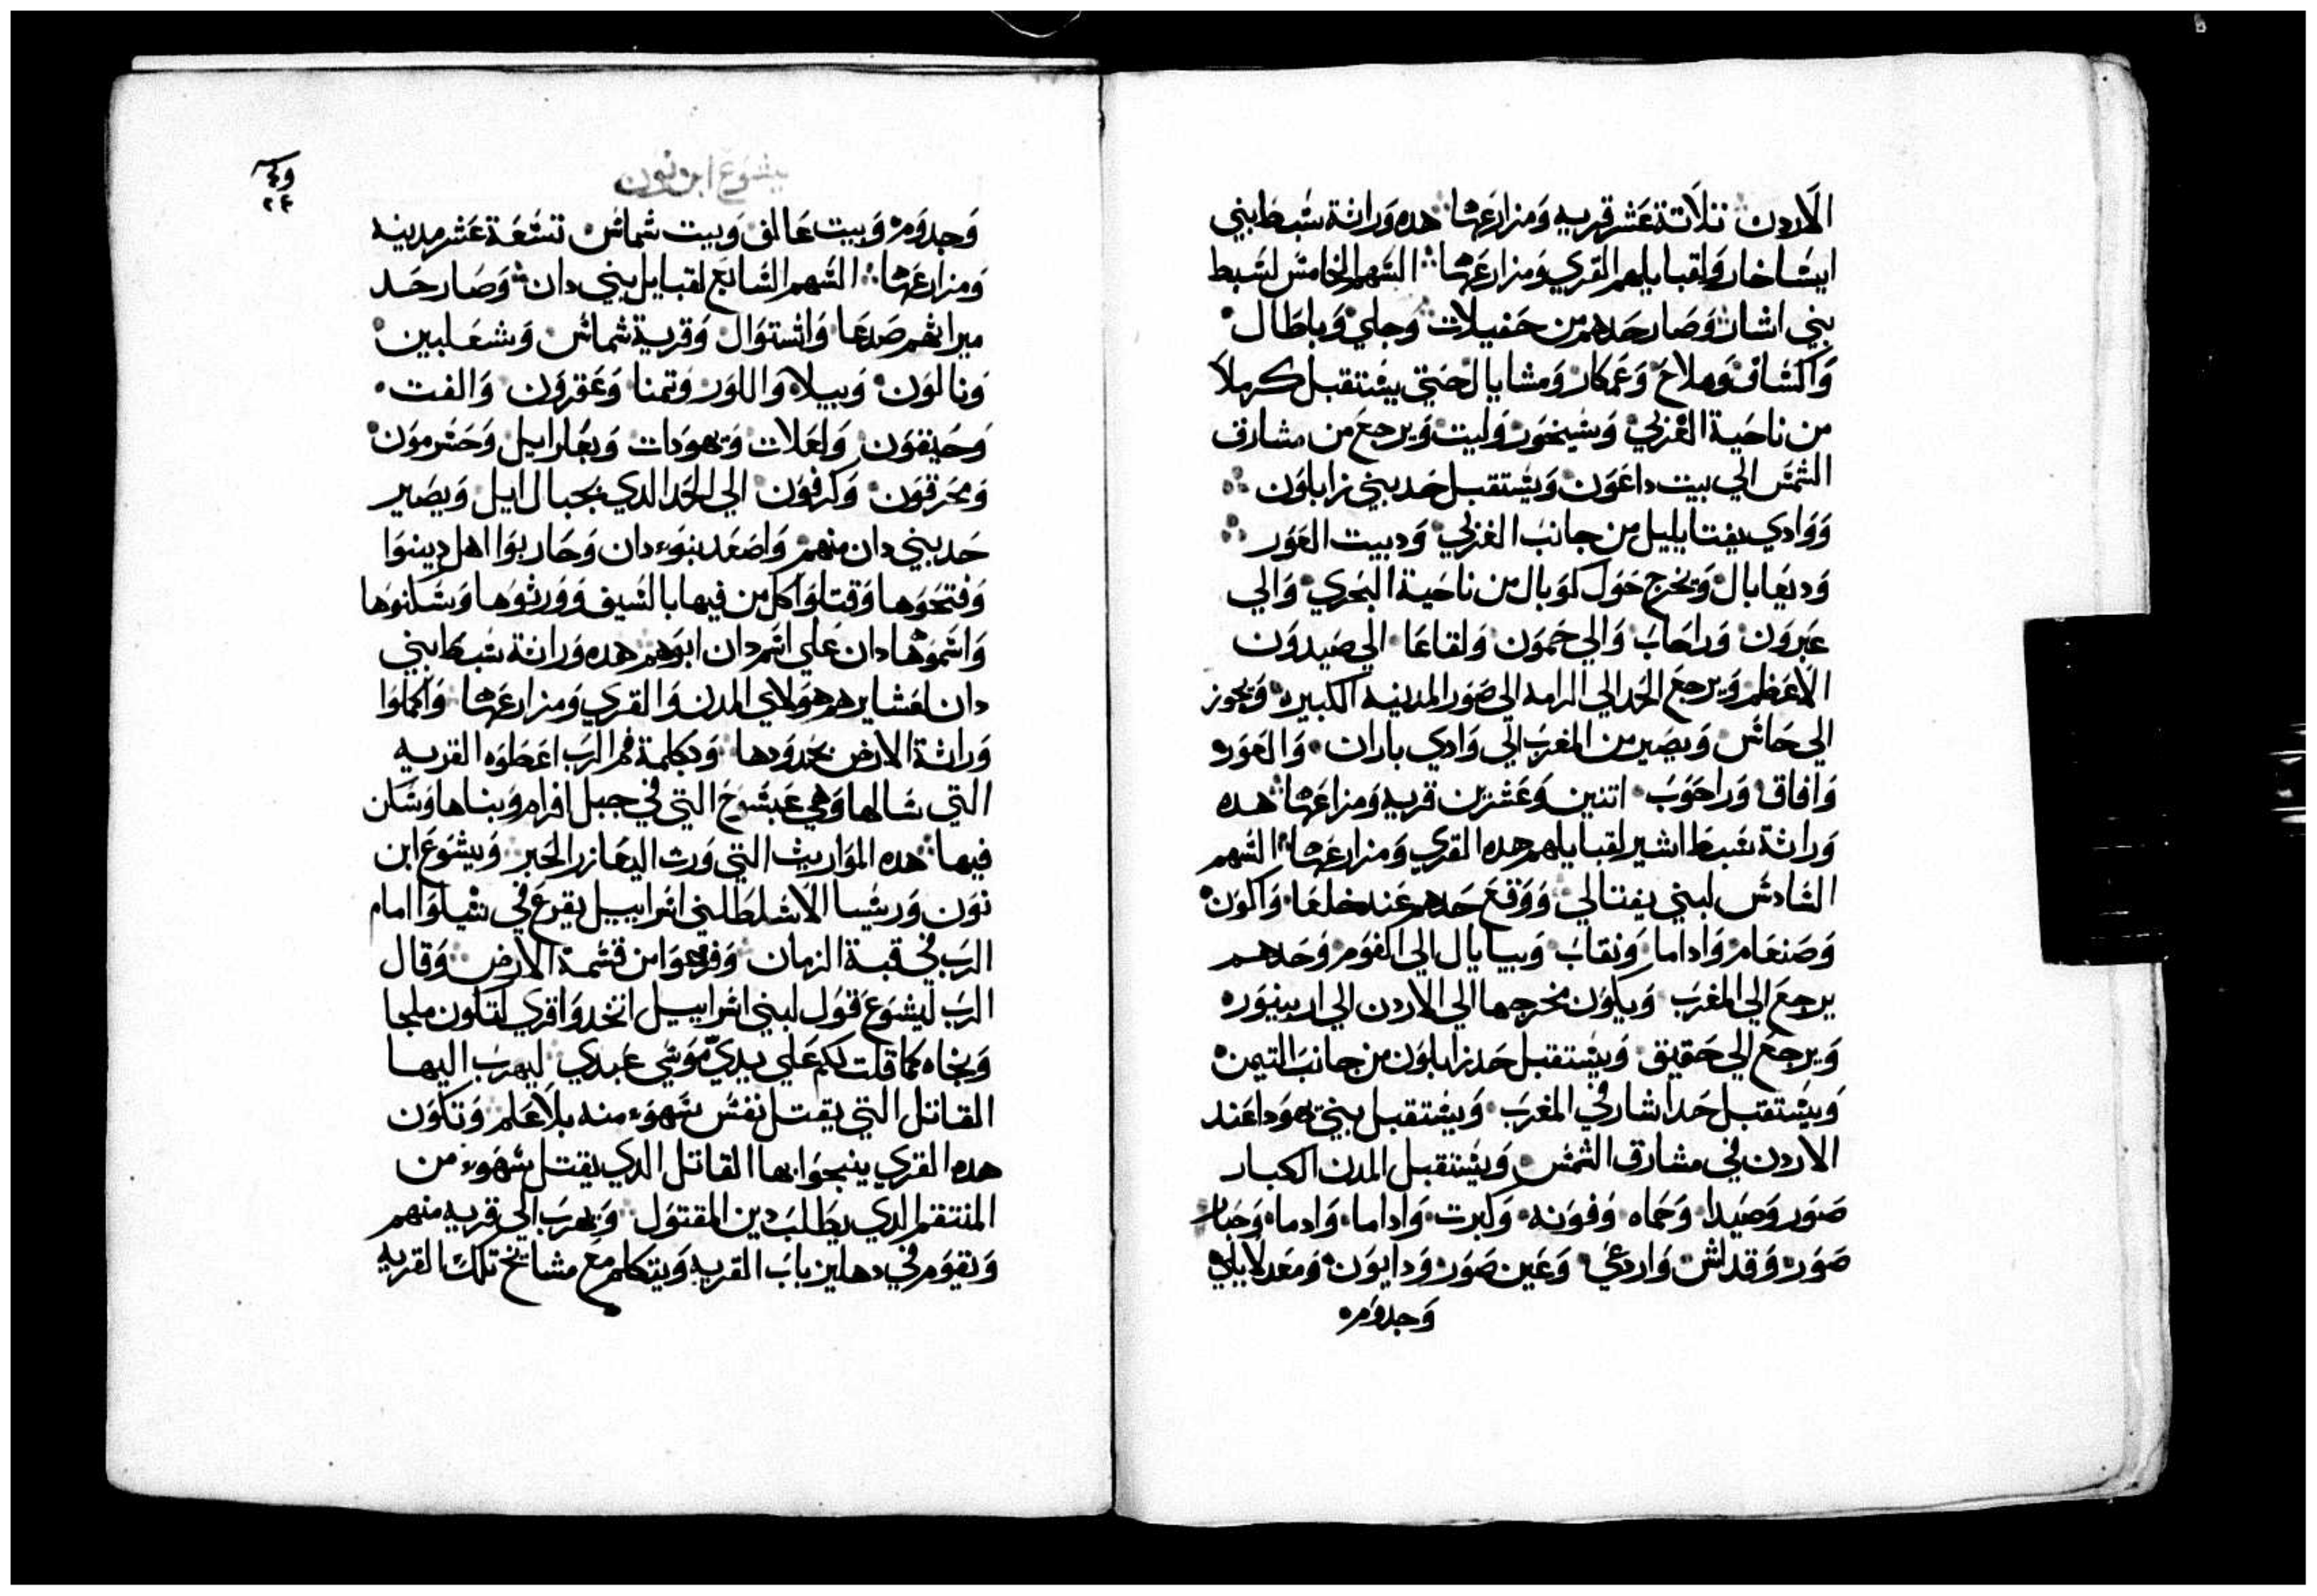 الاردن ثلاثة عشر قريه ومزارعها هده وراثة سبط بني
ايساخار ولقبايلهم القري ومزارعها السهم الخامس لسبط
بني اشار وصار حدهم من حفيلات وجلي وباطال
واكساف وملاخ وعمكار ومشايال حتي يستقبل كرملا
من ناحية الغربي وشيحور وليت ويرجع من مشارق
الشمس الي بيت داعون ويستقبل حد بني زابلون
ووادي يفتايليل من جانب الغربي ودبيت الغور
وديعابال وتخرج حول كوبال من ناحية البحري والي
عبرون وراحاب والي حمون ولقاعا الي صيدون
الاعظم ويرجع الحد الي الرامه الي صور المدينه الكبيره ويجوز
الي حاس ويصير من المغرب الي وادي باران والعوره
وافاق وراحوب اتنين وعشرين قريه ومزاعها هده
وراثة سبط اشير لقبايلهم هده القري ومزارعها السهم
السادس لبني يفتالي ووقع حدهم عند خلعا والون
وصنعام واداما ونقاب وبيايال الي اكفوم وحدهم
يرجع الي المغرب ويكون مخرجها الي الاردن الي اربينوره
ويرجع الي حقيق ويستقبل حد زابلون من جانب التيمن
ويستقبل حد اشار في المغرب ويستقبل بيني يهودا عند
الاردن في مشارق الشمس ويستقبل المدن الكبار
صور وصيدا وحماه وفونه وكبرت واداما وادما وحبار
صور وقداش واردعي وعين صور ودايون ومعدلايلي
وجدومه
يشوع ابن نون
٢٤
وجدوم وبيت عالف وبيت شماس تسعة عشر مدينه
ومزارعها السهم السابع لقبايل بيني دان وصار حد
ميراثهم صدعا واشتوال وقرية شماس وشعلبين
ونالون وبيلاه واللور وتمنا وعقرون والفت
وحيفون ولعلات ويهودات وبعلرابيل وحسرمون
ومحرقون وكرفون الي الحد الدي بجبال ايل ويصير
حد بيني دان منهم واصعد بنوء دان وحاربوا اهل دينوا
وفتحوها وقتلوا كل من فيها بالسيف وورثوها وسكنوها
واسموها دان علي اسم دان ابوهم هده وراثة سبط بني
دان لعشايرهم هولاي المدن والقري ومزارعها واكملوا
وراثة الارض بحدودها وبكلمة فم الرب اعطوه القريه
التي سالها وهي عبشوخ التي في جبل افرام وبناها وسكن
فيها هده المواريث التي ورث اليعازر الحبر ويشوع ابن
نون وريسا الاسلط لبني اسراييل يقرع في شيلوا امام
الرب في قبة الزمان وفرعوا من قسمة الارض وقال
الرب ليشوع قول لبني اسراييل اتخدوا قري لتكون ملجا
ونجاه كما قلت لكم علي يدي موسي عبدي ليهرب اليها
القاتل التي يقتل نفس بسهوء منه بلا علم وتكون
هده القري ينجوا بها القاتل الدي يقتل بسهوء من
المنتقم الدي يطلب دين المقتول ويهرب الي قريه منهم
ويقوم في دهليز باب القريه ويتكلم مع مشايخ تلك القريه